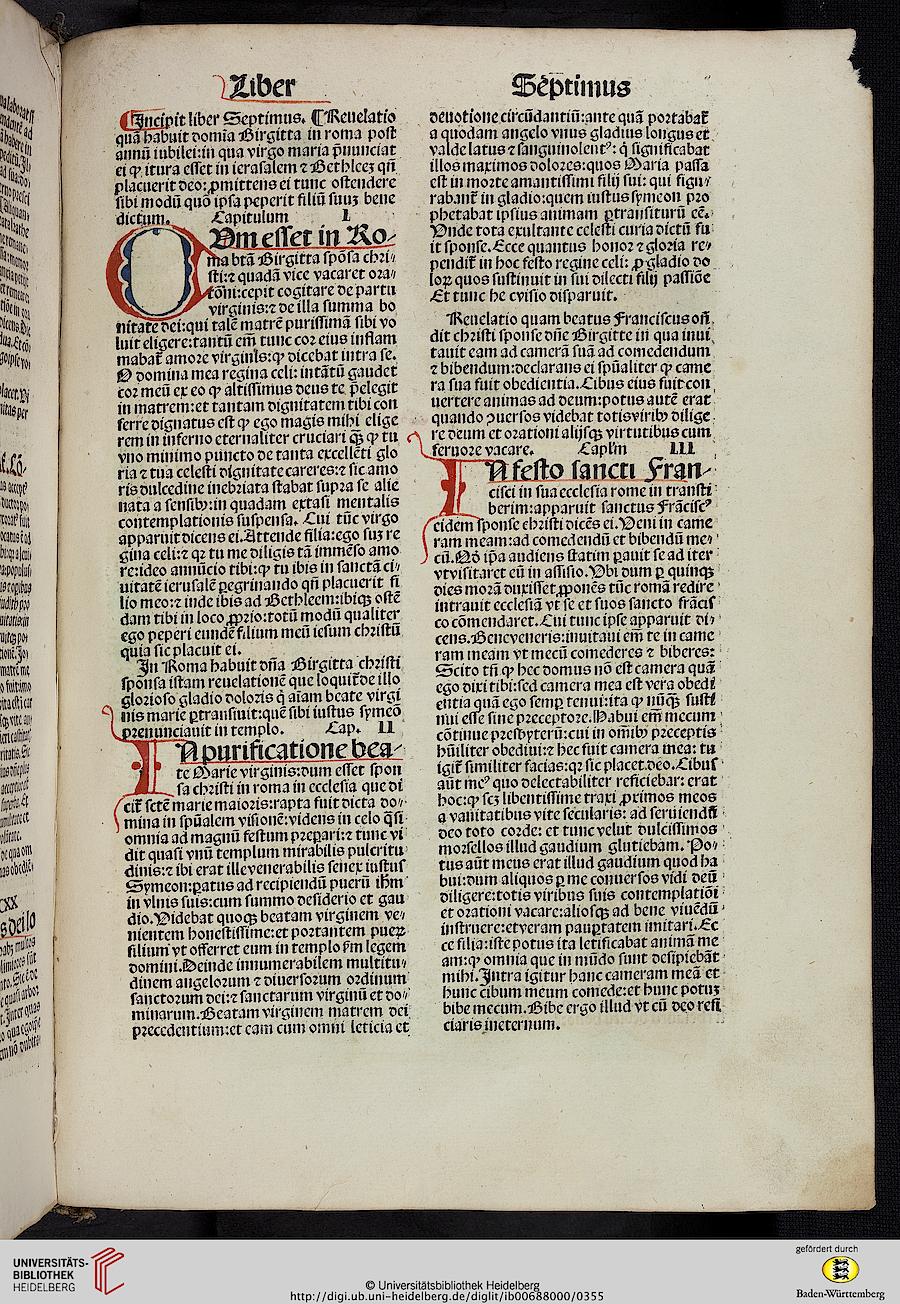 Liber Septimus
¶Incipit liber Septimus. ¶Reuelatio
quã habuit domīa Birgitta in roma post
annũ iubilei:in qua virgo maria p̄nunciat
ei ꝙ itura esset in ierusalem ⁊ Bethleez qñ
placuerit deo:ꝓmittens ei tunc ostendere
sibi modũ quõ ipsa peperit filiũ suuz bene
dictum. Capitulum I
QVm esset in Ro⸗
ma btã Birgitta spõsa chri⸗
sti:⁊ quadã vice vacaret ora⸗
tõni:cepit cogitare de partu
virginis:⁊ de illa summa bo
nitate dei:qui talẽ matrẽ purissimã sibi vo
luit eligere:tantũ em̃ tunc cor eius inflam
mabat̃ amore virginis:ꝙ dicebat intra se.
O domina mea regina celi: intãtũ gaudet
cor meũ ex eo ꝙ altissimus deus te p̄elegit
in matrem:et tantam dignitatem tibi con
ferre dignatus est ꝙ ego magis mihi elige
rem in inferno eternaliter cruciari q̃ꝫ ꝙ tu
vno minimo puncto de tanta excellẽti glo
ria ⁊ tua celesti dignitate careres:⁊ sic amo
ris dulcedine inebriata stabat supra se alie
nata a sensibꝰ:in quadam extasi mentalis
contemplationis suspensa. Cui tũc virgo
apparuit dicens ei.Attende filia:ego suz re
gina celi:⁊ qꝛ tu me diligis tã immẽso amo
re:ideo annũcio tibi:ꝙ tu ibis in sanctã ci⸗
uitatẽ ierusalẽ ꝑegrinando qñ placuerit fi
lio meo:⁊ inde ibis ad Bethleem:ibiqꝫ ostẽ
dam tibi in loco ꝓprio:totũ modũ qualiter
ego peperi eundẽ filium meũ iesum christũ
quia sic placuit ei.
In Roma habuit dña Birgitta christi
sponsa istam reuelationẽ que loquit̃ de illo
glorioso gladio doloris q̃ aĩam beate virgi
nis marie ꝑtransiuit:quẽ sibi iustus symeõ
prenunciauit in templo. Cap. II
IN purificatione bea⸗
te Marie virginis:dum esset spon
sa christi in roma in ecclesia que di
cit̃ sctẽ marie maioris:rapta fuit dicta do⸗
mina in spũalem visionẽ:videns in celo q̃si
omnia ad magnũ festum prepari:⁊ tunc vi
dit quasi vnũ templum mirabilis pulcritu
dinis:⁊ ibi erat ille venerabilis senex iustus
Symeon:ꝑatus ad recipiendũ puerũ ihm̃
in vlnis suis:cum summo desiderio et gau
dio.Videbat quoqꝫ beatam virginem ve⸗
nientem honestissime:et portantem puerꝝ
filium vt offerret eum in templo ẜm legem
domini.Deinde innumerabilem multitu⸗
dinem angelorum ⁊ diuersorum ordinum
sanctorum dei:⁊ sanctarum virginũ et do⸗
minarum.Beatam virginem matrem dei
precedentium:et eam cum omni leticia et
deuotione circũdantiũ:ante quã portabat̃
a quodam angelo vnus gladius longus et
valde latus ⁊ sanguinolentꝰ: q̃ significabat
illos maximos dolores:quos Maria passa
est in morte amantissimi filij sui: qui figu⸗
rabant̃ in gladio:quem iustus symeon pro
phetabat ipsius animam ꝑtransiturũ eẽ.
Vnde tota exultante celesti curia dictũ fu
it sponse.Ecce quantus honor ⁊ gloria re⸗
pendit̃ in hoc festo regine celi: ꝓ gladio do
loꝝ quos sustinuit in sui dilecti filij passiõe
Et tunc hec visio disparuit.
Reuelatio quam beatus Franciscus oñ
dit christi sponse dñe Birgitte in qua inui
tauit eam ad camerã suã ad comedendum
⁊ bibendum:declarans ei spũaliter ꝙ came
ra sua fuit obedientia.Cibus eius fuit con
uertere animas ad deum:potus autẽ erat
quando ꝯuersos videbat totis viribꝰ dilige
re deum et orationi alijsqꝫ virtutibus cum
feruore vacare. Caplm̃ III
IN festo sancti Fran⸗
cisci in sua ecclesia rome in transti
berim:apparuit sanctus Frãciscꝰ
eidem sponse christi dicẽs ei.Veni in came
ram meam:ad comedendũ et bibendũ me⸗
cũ.Qõ ip̃a audiens statim ꝑauit se ad iter
vt visitaret eũ in assisio.Vbi dum ꝑ quinqꝫ
dies morã duxisset,ꝓponẽs tũc romã redire
intrauit ecclesiã vt se et suos sancto frãcis
co cõmendaret.Cui tunc ipse apparuit di⸗
cens.Beneveneris:inuitaui em̃ te in came
ram meam vt mecũ comederes ⁊ biberes:
Scito tñ ꝙ hec domus nõ est camera quã
ego dixi tibi:sed camera mea est vera obedi
entia quã ego semꝑ tenui:ita ꝙ nũqꝫ susti
nui esse sine preceptore.Habui em̃ mecum
cõtinue presbyterũ:cui in om̃ibꝰ preceptis
hũiliter obediui:⁊ hec fuit camera mea: tu
igit̃ similiter facias:qꝛ sic placet.deo.Cibuſ
aũt meꝰ quo delectabiliter reficiebar: erat
hoc:ꝙ scꝫ libentissime traxi ꝓximos meos
a vanitatibus vite secularis: ad seruiendũ
deo toto corde: et tunc velut dulcissimos
morsellos illud gaudium glutiebam. Po⸗
tus aũt meus erat illud gaudium quod ha
bui:dum aliquos ꝑ me conuersos vidi deũ
diligere:totis viribus suis contemplatiõi
et orationi vacare:aliosqꝫ ad bene viuẽdũ
instruere:et veram pauꝑtatem imitari.Ec
ce filia:iste potus ita letificabat animã me
am:ꝙ omnia que in mũdo sunt desipiebãt
mihi.Intra igitur hanc cameram meã et
hunc cibum meum comede:et hunc potuz
bibe mecum.Bibe ergo illud vt cũ deo refi
ciaris ineternum.
UNIVERSITÄTS-
BIBLIOTHEK
HEIDELBERG
© Universitätsbibliothek Heidelberg
http://digi.ub.uni-heidelberg.de/diglit/ib00688000/0355
gefördert durch
Baden-Württemberg